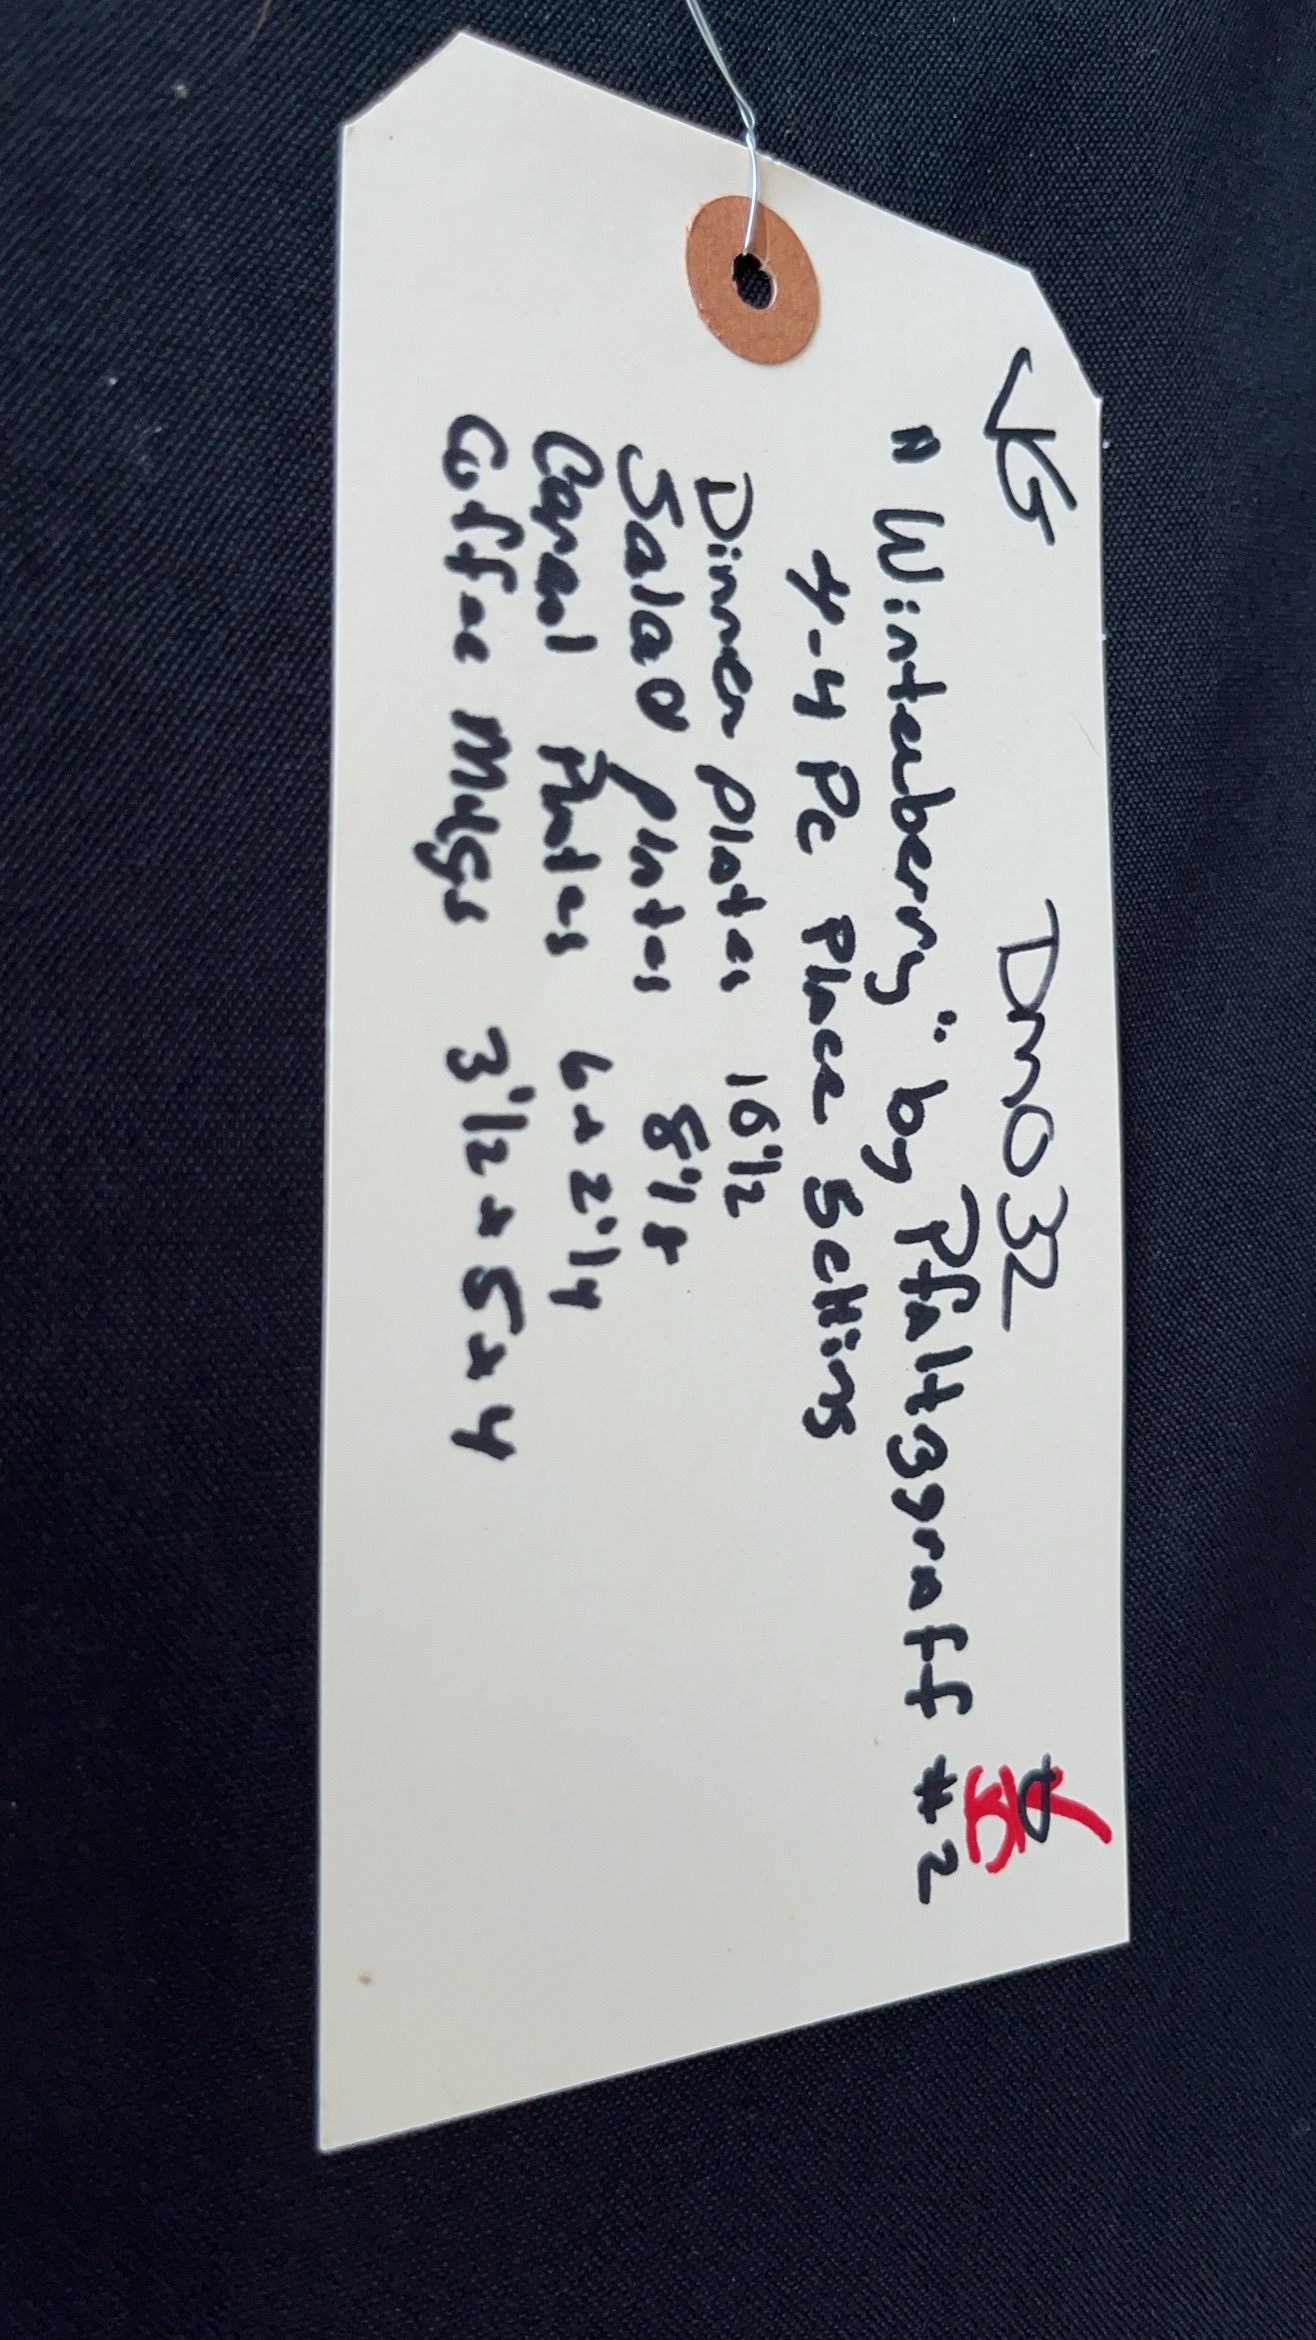 VG DM032
"Winterberry" by Pfaltzgraff #2
4-4 Pc Place Setting
Dinner Plates 10 1/2
Salad Plates 8 1/8
Cereal Plates 6 x 2 1/4
Coffee Mugs 3 1/2 x 5 x 4